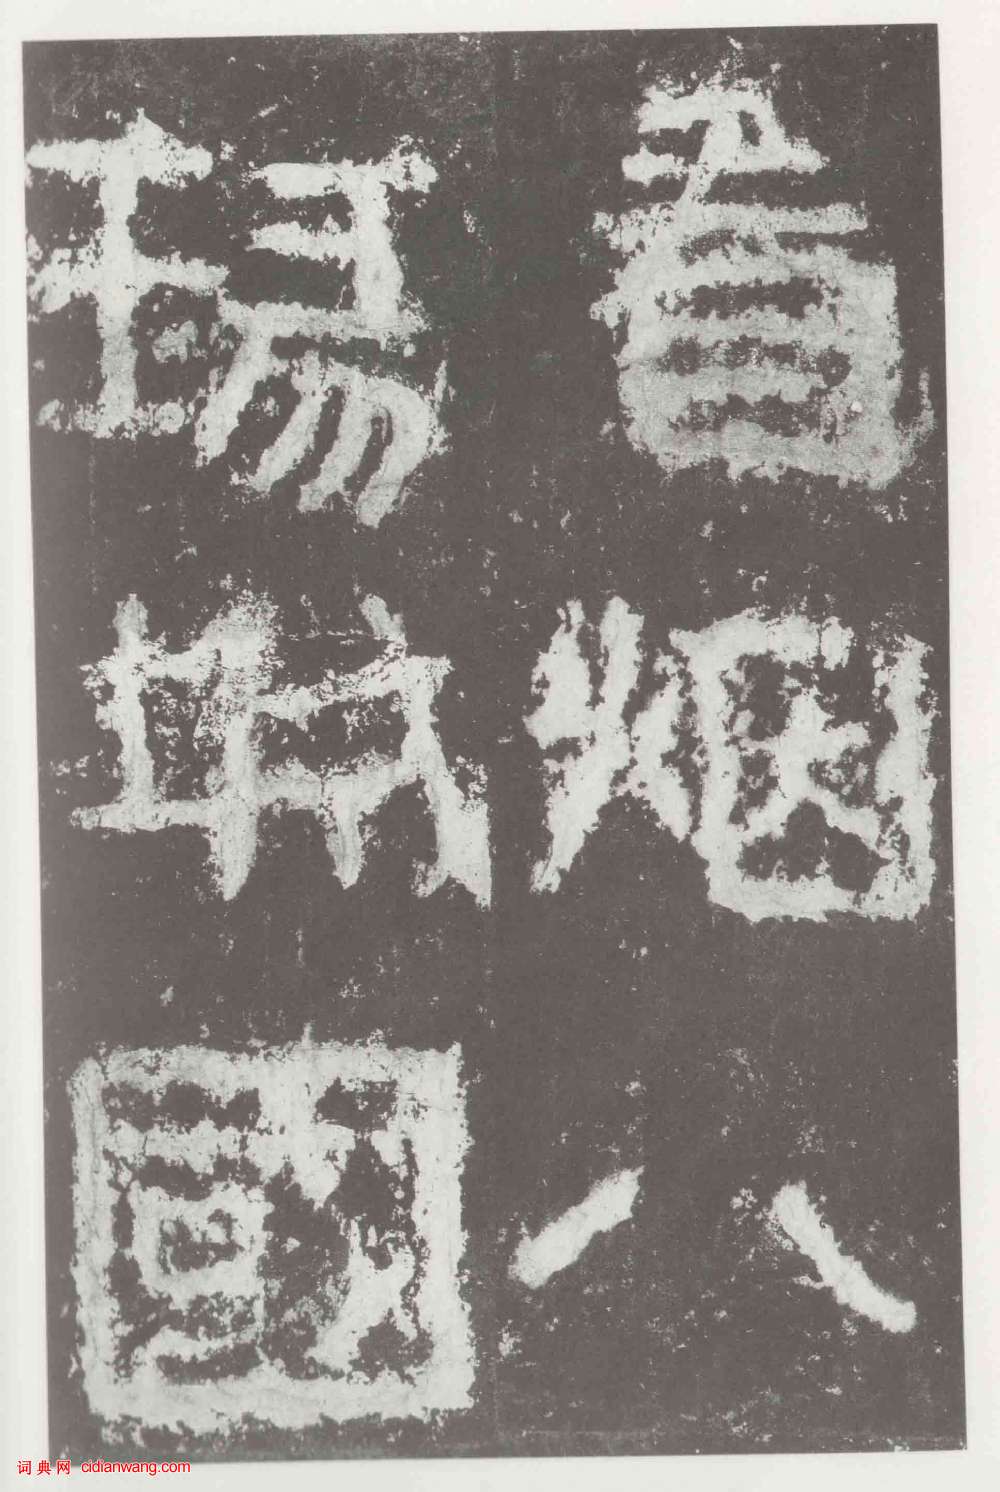 看烟八
瑑城國
词典网 cidianwang.com